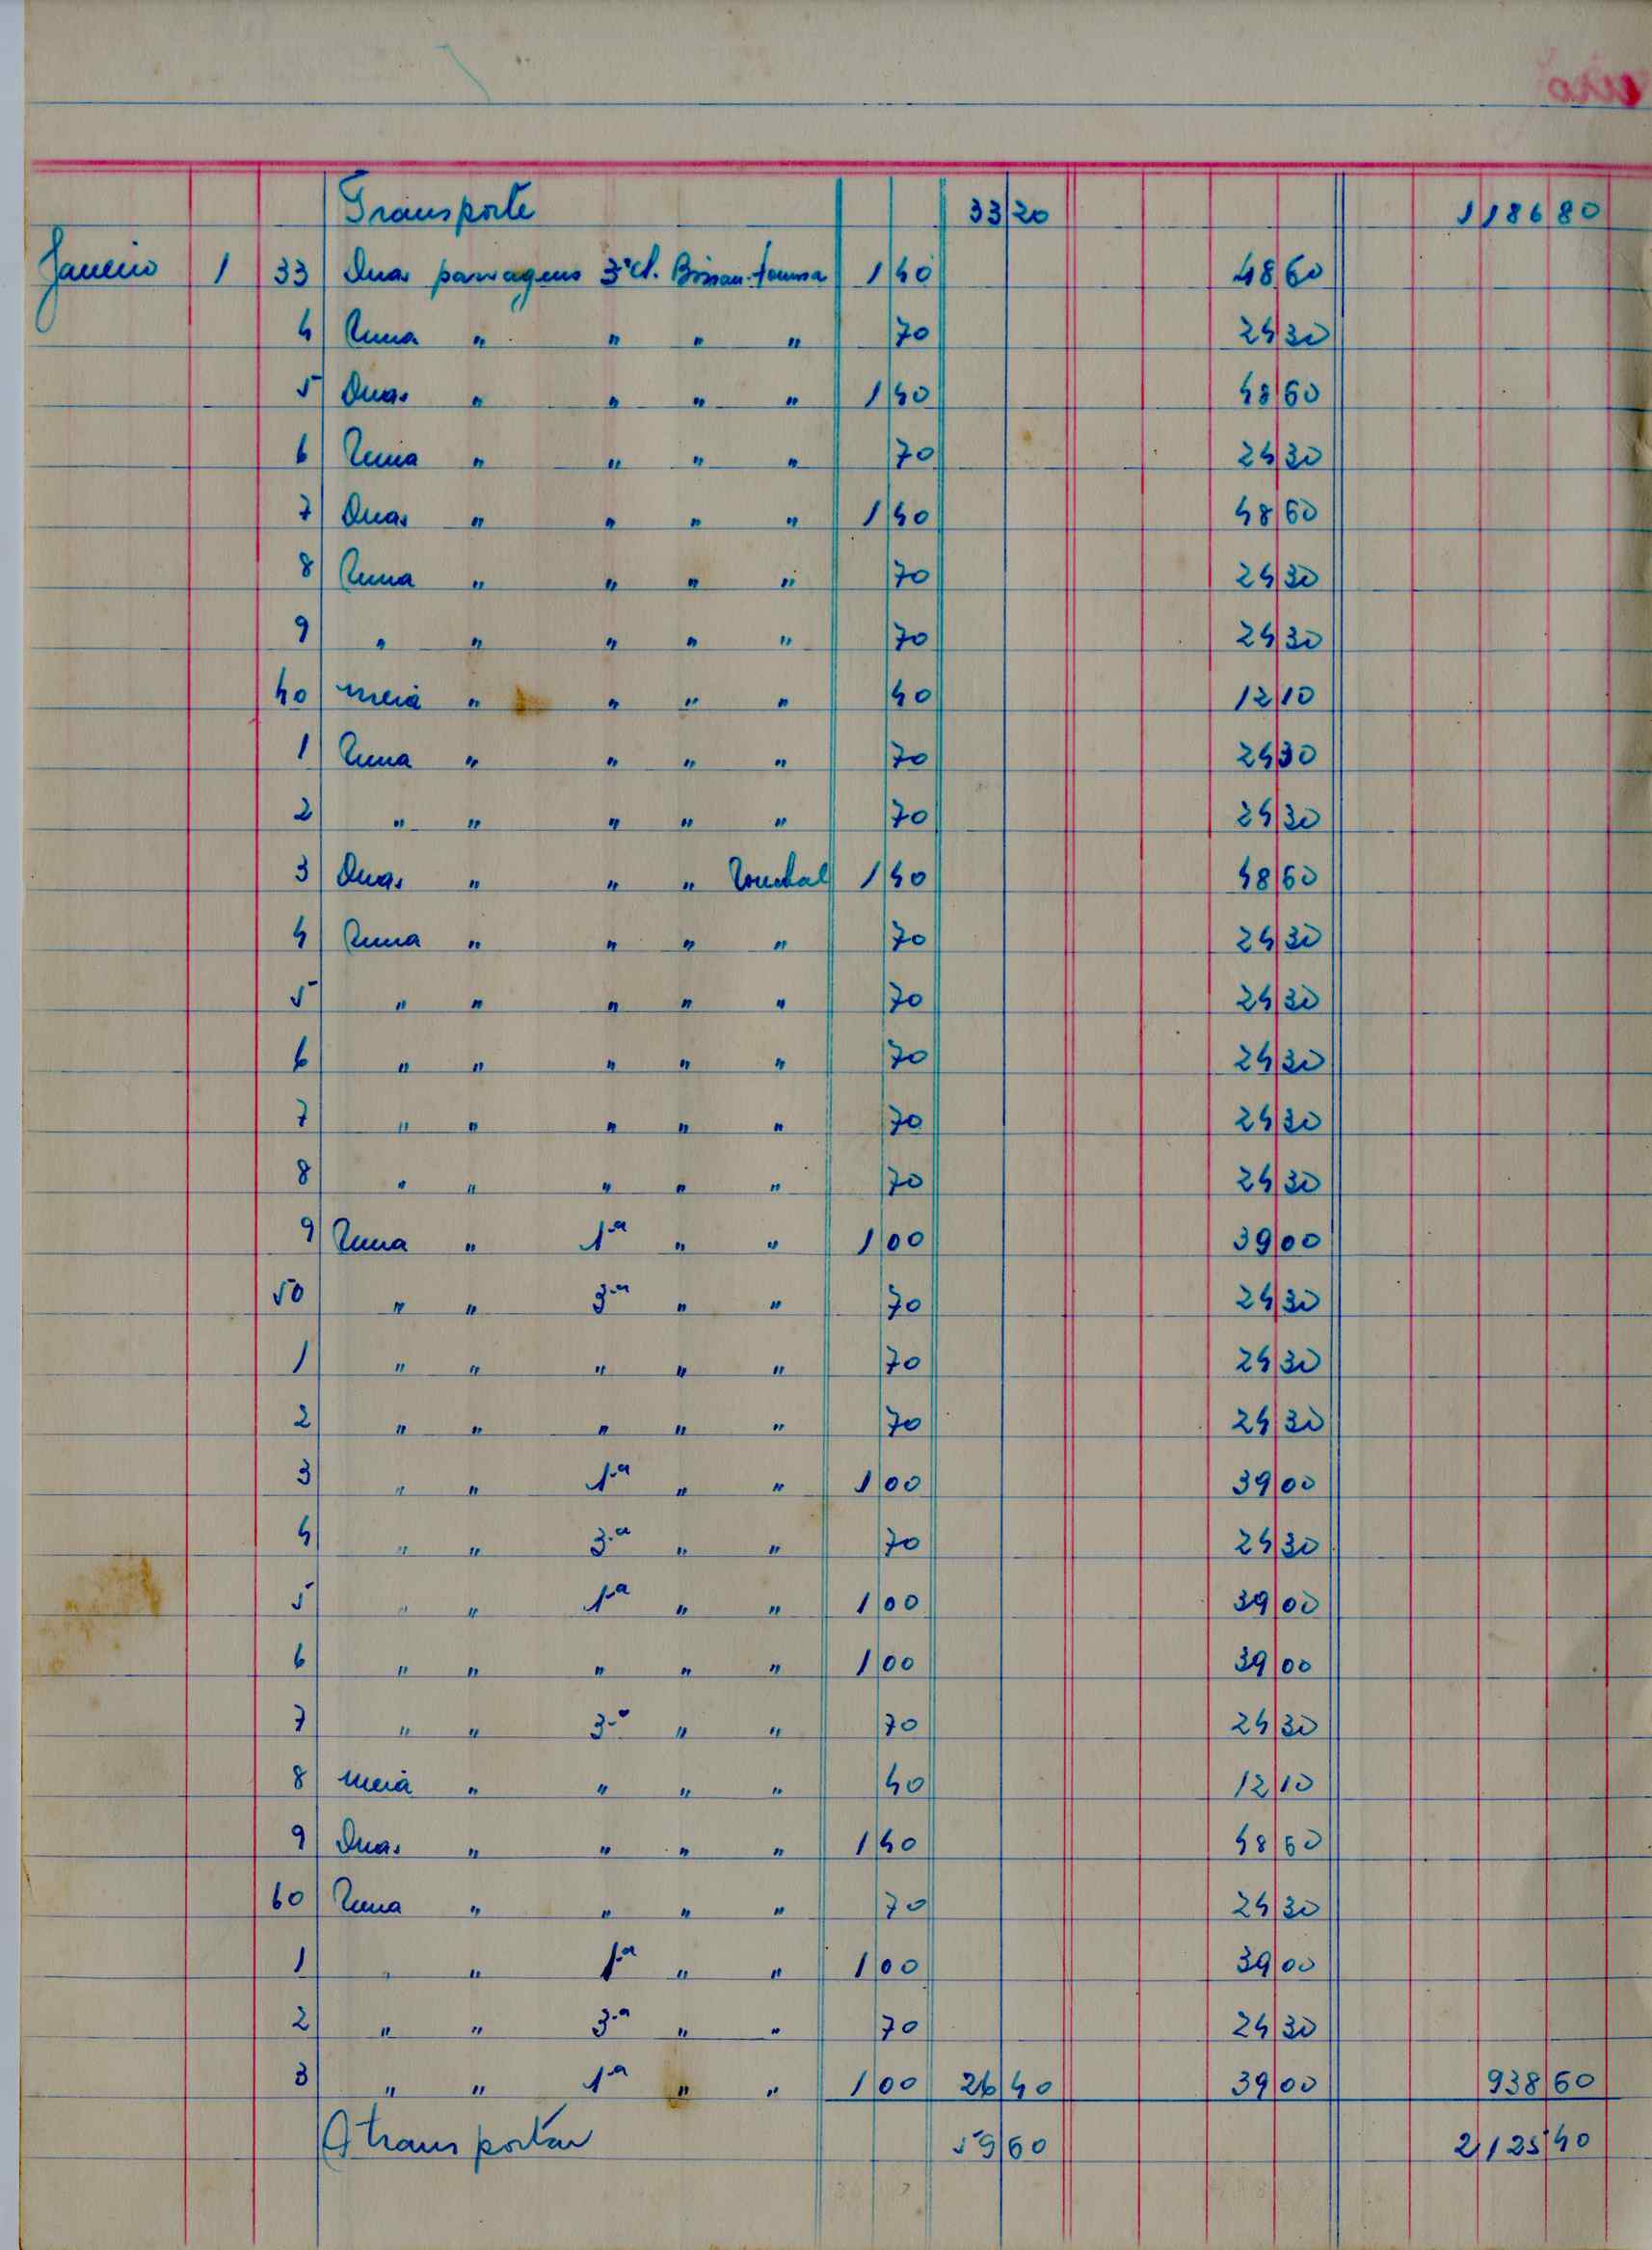 Transporte 33 20 1 186 80
Janeiro 1 33 Duas passagens 3ª cl. Bissau 1 40 48 60
4 Uma " " " " 70 24 30
5 Duas " " " " 1 40 48 60
6 Uma " " " " 70 24 30
7 Duas " " " " 1 40 48 60
8 Uma " " " " 70 24 30
9 " " " " " 70 24 30
40 meia " " " " 40 12 10
1 Uma " " " " 70 24 30
2 " " " " " 70 24 30
3 Duas " " " 1 40 48 60
4 Uma " " " " 70 24 30
5 " " " " " 70 24 30
6 " " " " " 70 24 30
7 " " " " " 70 24 30
8 " " " " " 70 24 30
9 Uma " 1ª " " 1 00 39 00
50 " " 3ª " " 70 24 30
1 " " " " " 70 24 30
2 " " " " " 70 24 30
3 " " 1ª " " 1 00 39 00
4 " " 3ª " " 70 24 30
5 " " 1ª " " 1 00 39 00
6 " " " " " 1 00 39 00
7 " " 3ª " " 70 24 30
8 meia " " " " 40 12 10
9 Duas " " " " 1 40 48 60
60 Uma " " " " 70 24 30
1 " " 1ª " " 1 00 39 00
2 " " 3ª " " 70 24 30
3 " " 1ª " " 1 00 26 40 39 00 938 60
A transportar 59 60 2 125 40